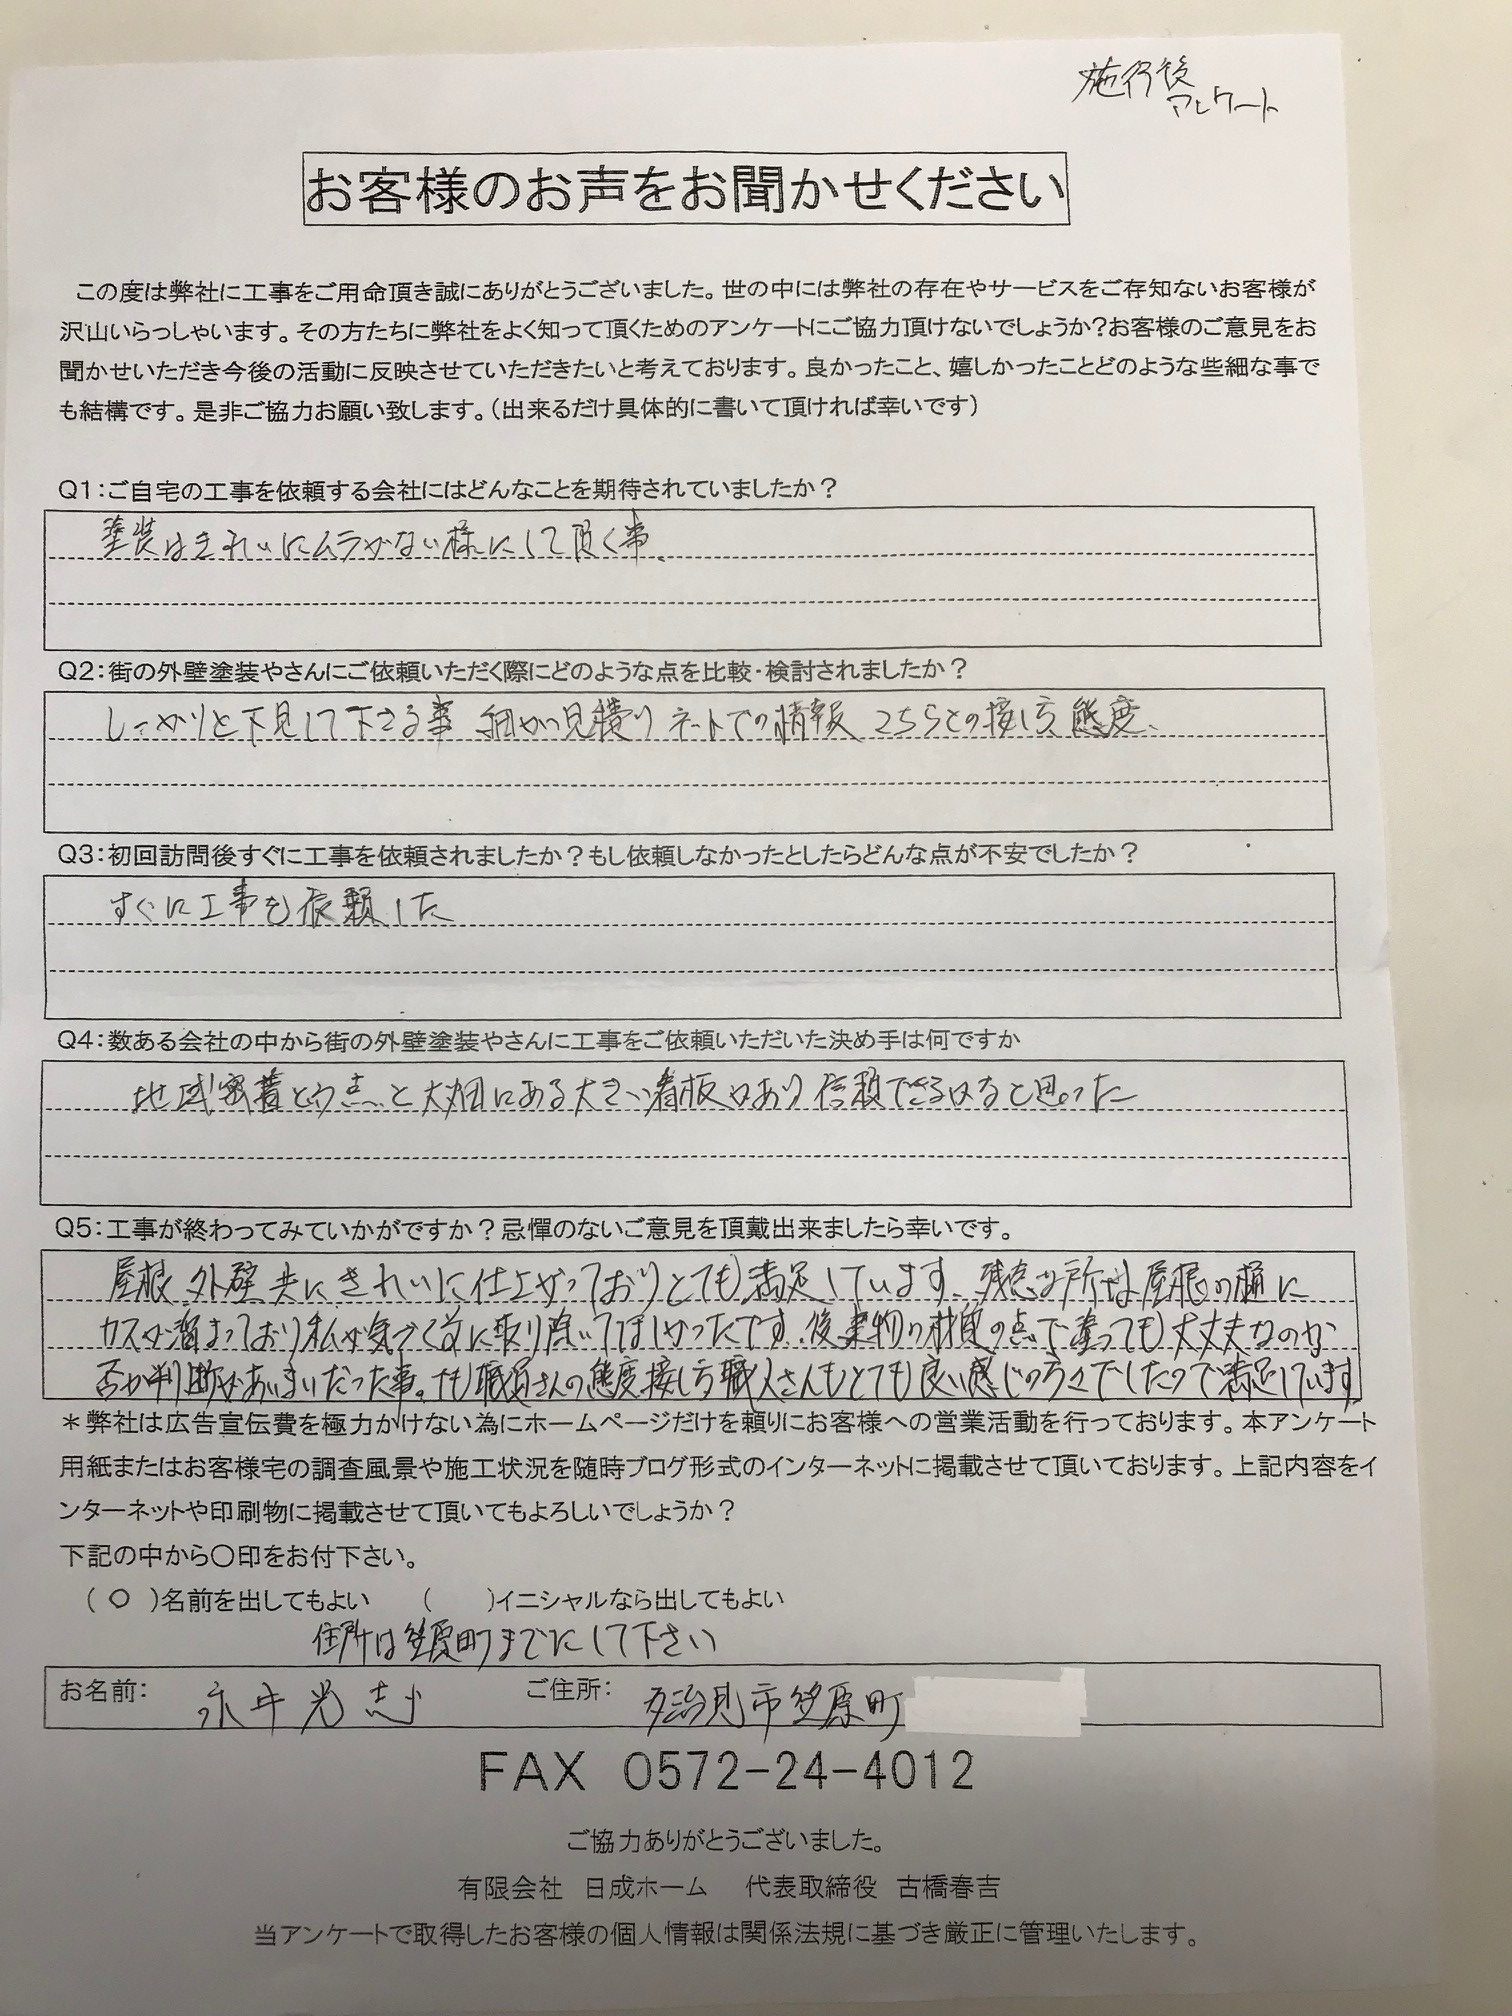 施行後
アンケート
お客様のお声をお聞かせください
この度は弊社に工事をご用命頂き誠にありがとうございました。世の中には弊社の存在やサービスをご存知ないお客様が
沢山いらっしゃいます。その方たちに弊社をよく知って頂くためのアンケートにご協力頂けないでしょうか?お客様のご意見をお
聞かせいただき今後の活動に反映させていただきたいと考えております。良かったこと、嬉しかったことどのような些細な事で
も結構です。是非ご協力お願い致します。(出来るだけ具体的に書いて頂ければ幸いです)
Q1:ご自宅の工事を依頼する会社にはどんなことを期待されていましたか?
塗装はきれいにムラがない様にして頂く事、
Q2:街の外壁塗装やさんにご依頼いただく際にどのような点を比較・検討されましたか?
しっかりと下見して下さる事 細かい見積り ネットでの情報、こちらとの接し方、態度、
Q3:初回訪問後すぐに工事を依頼されましたか?もし依頼しなかったとしたらどんな点が不安でしたか?
すぐに工事を依頼した
Q4:数ある会社の中から街の外壁塗装やさんに工事をご依頼いただいた決め手は何ですか
地域密着とう点と大畑にある大きい看板があり 信頼できるかなと思った
Q5:工事が終わってみていかがですか?忌憚のないご意見を頂戴出来ましたら幸いです。
屋根 外壁 共にきれいに仕上がっておりとても満足しています、残念な所は屋根の樋に
カスが溜まっており私が気づく前に取り除いてほしかったです、後 建物の材質の点で塗っても大丈夫なのか
否か判断があいまいだった事。でも職員さんの態度接し方 職人さんもとても良い感じの方々でしたので満足しています
*弊社は広告宣伝費を極力かけない為にホームページだけを頼りにお客様への営業活動を行っております。本アンケート
用紙またはお客様宅の調査風景や施工状況を随時ブログ形式のインターネットに掲載させて頂いております。上記内容をイ
ンターネットや印刷物に掲載させて頂いてもよろしいでしょうか?
下記の中から〇印をお付下さい。
(〇)名前を出してもよい ( )イニシャルなら出してもよい
住所は笠原町までにして下さい
お名前: 永井光志 ご住所: 多治見市笠原町
FAX 0572-24-4012
ご協力ありがとうございました。
有限会社 日成ホーム 代表取締役 古橋春吉
当アンケートで取得したお客様の個人情報は関係法規に基づき厳正に管理いたします。